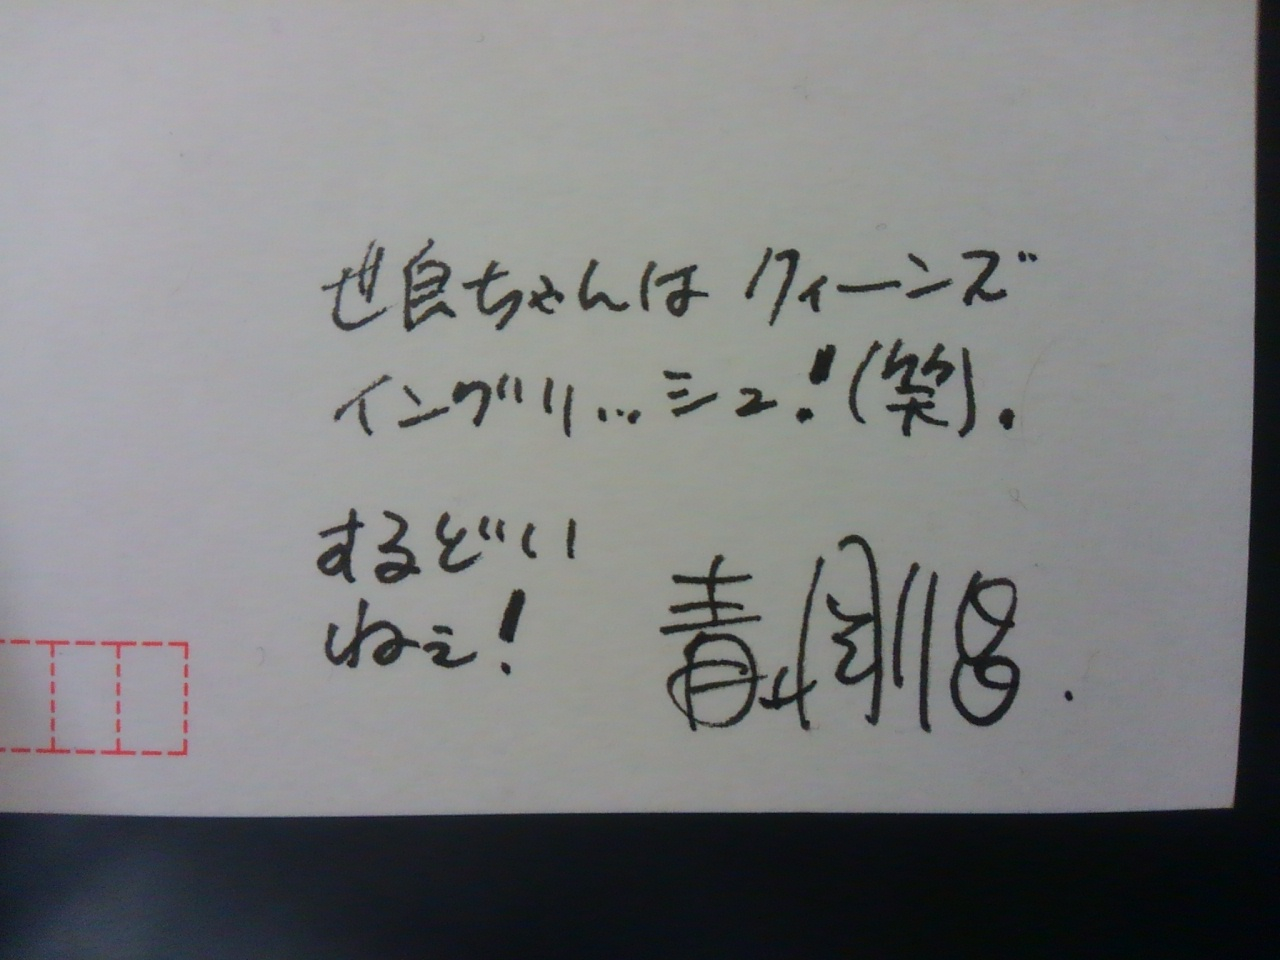 世良ちゃんは クィーンズ
イングリ…シュ!(笑).
するどい
ねぇ!
青山剛昌.